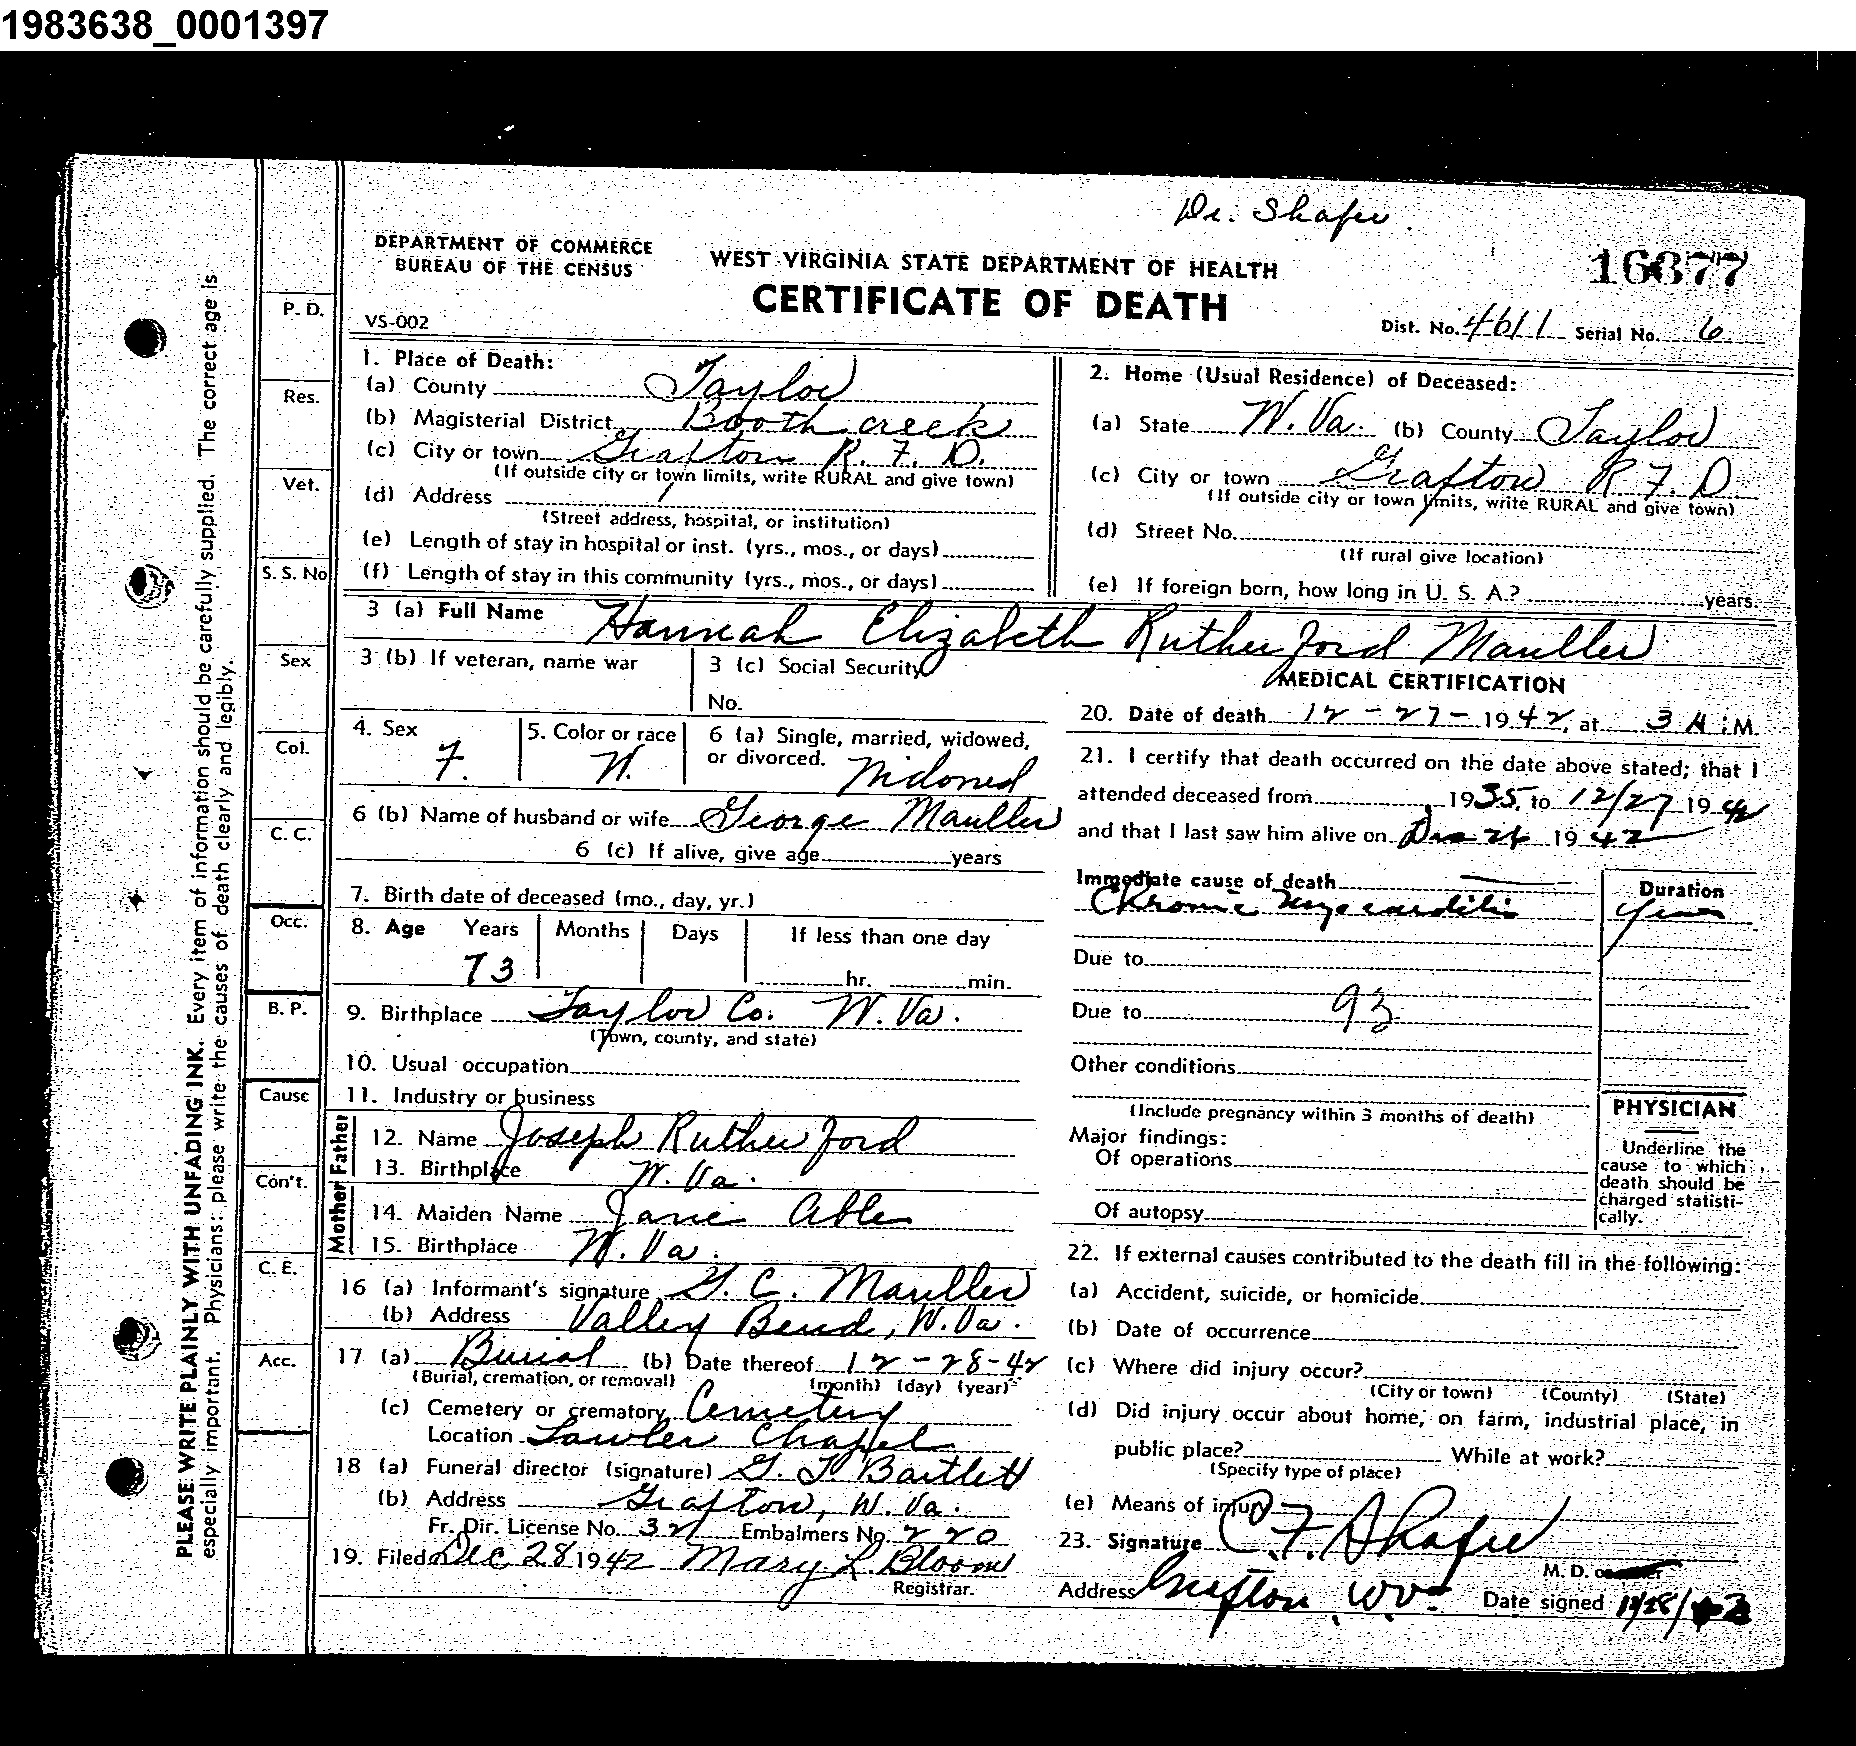 1983638_0001397
Dr. Shafer
DEPARTMENT OF COMMERCE
BUREAU OF THE CENSUS
WEST VIRGINIA STATE DEPARTMENT OF HEALTH
16877
CERTIFICATE OF DEATH
VS-002
Dist. No. 4611 Serial No. 6
PLEASE WRITE PLAINLY WITH UNFADING INK. Every item of information should be carefully supplied. The correct age is
especially important. Physicians: please write the causes of death clearly and legibly.
P. D.
Res.
Vet.
S. S. No
Sex
Col.
C. C.
Occ.
B. P.
Cause
Con't.
C. E.
Acc.
1. Place of Death:
(a) County Taylor
(b) Magisterial District Booth creek
(c) City or town Grafton R. F. D.
(If outside city or town limits, write RURAL and give town)
(d) Address
(Street address, hospital, or institution)
(e) Length of stay in hospital or inst. (yrs., mos., or days)
(f) Length of stay in this community (yrs., mos., or days)
2. Home (Usual Residence) of Deceased:
(a) State W. Va. (b) County Taylor
(c) City or town Grafton R F. D
(If outside city or town limits, write RURAL and give town)
(d) Street No.
(If rural give location)
(e) If foreign born, how long in U. S. A.? years.
3 (a) Full Name Hannah Elizabeth Rutherford Mauller
3 (b) If veteran, name war
3 (c) Social Security
No.
4. Sex F.
5. Color or race W.
6 (a) Single, married, widowed,
or divorced. Widowed
6 (b) Name of husband or wife George Mauller
6 (c) If alive, give age years
7. Birth date of deceased (mo., day, yr.)
8. Age Years Months Days If less than one day
73 hr. min.
9. Birthplace Taylor Co. W. Va.
(Town, county, and state)
10. Usual occupation
11. Industry or business
Father
12. Name Joseph Rutherford
13. Birthplace W. Va.
Mother
14. Maiden Name Jane Able
15. Birthplace W. Va.
16 (a) Informant's signature G. C. Mauller
(b) Address Valley Bend, W. Va.
17 (a) Burial (b) Date thereof 12-28-42
(Burial, cremation, or removal) (month) (day) (year)
(c) Cemetery or crematory Cemetery
Location Lawler Chapel
18 (a) Funeral director (signature) G. T. Bartlett
(b) Address Grafton, W. Va.
Fr. Dir. License No. 321 Embalmers No. 220
19. Filed Dec 28 1942 Mary L. Bloom
Registrar.
MEDICAL CERTIFICATION
20. Date of death 12-27-1942, at 3 A:M
21. I certify that death occurred on the date above stated; that I
attended deceased from 1935, to 12/27 1942
and that I last saw him alive on Dec 26 1942
Immediate cause of death
Chronic Myocarditis
Duration
Years
Due to
Due to 93
Other conditions
(Include pregnancy within 3 months of death)
Major findings:
Of operations
Of autopsy
PHYSICIAN
Underline the
cause to which
death should be
charged statisti-
cally.
22. If external causes contributed to the death fill in the following:
(a) Accident, suicide, or homicide
(b) Date of occurrence
(c) Where did injury occur?
(City or town) (County) (State)
(d) Did injury occur about home, on farm, industrial place, in
public place? While at work?
(Specify type of place)
(e) Means of injury
23. Signature C. F. Shafer
M. D. or
Address Grafton W.V. Date signed 12/28/42